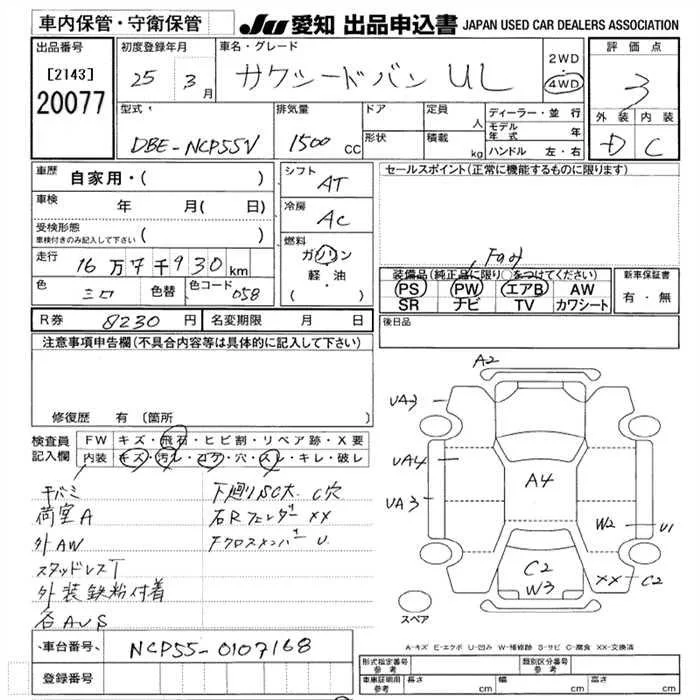 車内保管・守衛保管
JU 愛知 出品申込書 JAPAN USED CAR DEALERS ASSOCIATION
出品番号
[2143]
20077
初度登録年月
25 3月
車名・グレード
サクシードバン UL
2WD
・
4WD
評価点
3
外装 内装
D C
型式
DBE-NCP55V
排気量
1500 cc
ドア
形状
定員 人
積載 kg
ディーラー・並行
モデル年式 年
ハンドル 左・右
車歴 自家用・( )
車検 年 月( 日)
受検形態
車検付きのみ記入して下さい ( )
走行 16万7千930km
色 シロ 色替 色コード 058
シフト AT
冷房 AC
燃料
ガソリン
軽・油
( ・ )
セールスポイント(正常に機能するものに限ります)
装備品(純正品に限り○をつけてください)
PS PW エアB AW
SR ナビ TV カワシート
新車保証書
有・無
R券 8230円 名変期限 月 日
後日品
注意事項申告欄(不具合内容等は具体的に記入して下さい)
修復歴 有(箇所
検査員記入欄
FW キズ・飛石・ヒビ割・リペア跡・X要
内装 キズ・汚レ・コゲ・穴・スレ・キレ・破レ
干バミ
荷室A
外AW
スタッドレスT
外装鉄粉付着
各AUS
下廻りSC大 C穴
右Rフェンダー XX
Fクロスメンバー U
A2
UA3
UA4
UA3
A4
W2
U1
C2
W3
XX
C2
スペア
A-キズ E-エクボ U-凹み W-補修跡 S-サビ C-腐食 XX-交換済
車台番号 NCP55-0107168
登録番号
形式指定番号 参考
類別区分番号 参考
車庫証明用 参考 長さ cm 幅 cm 高さ cm